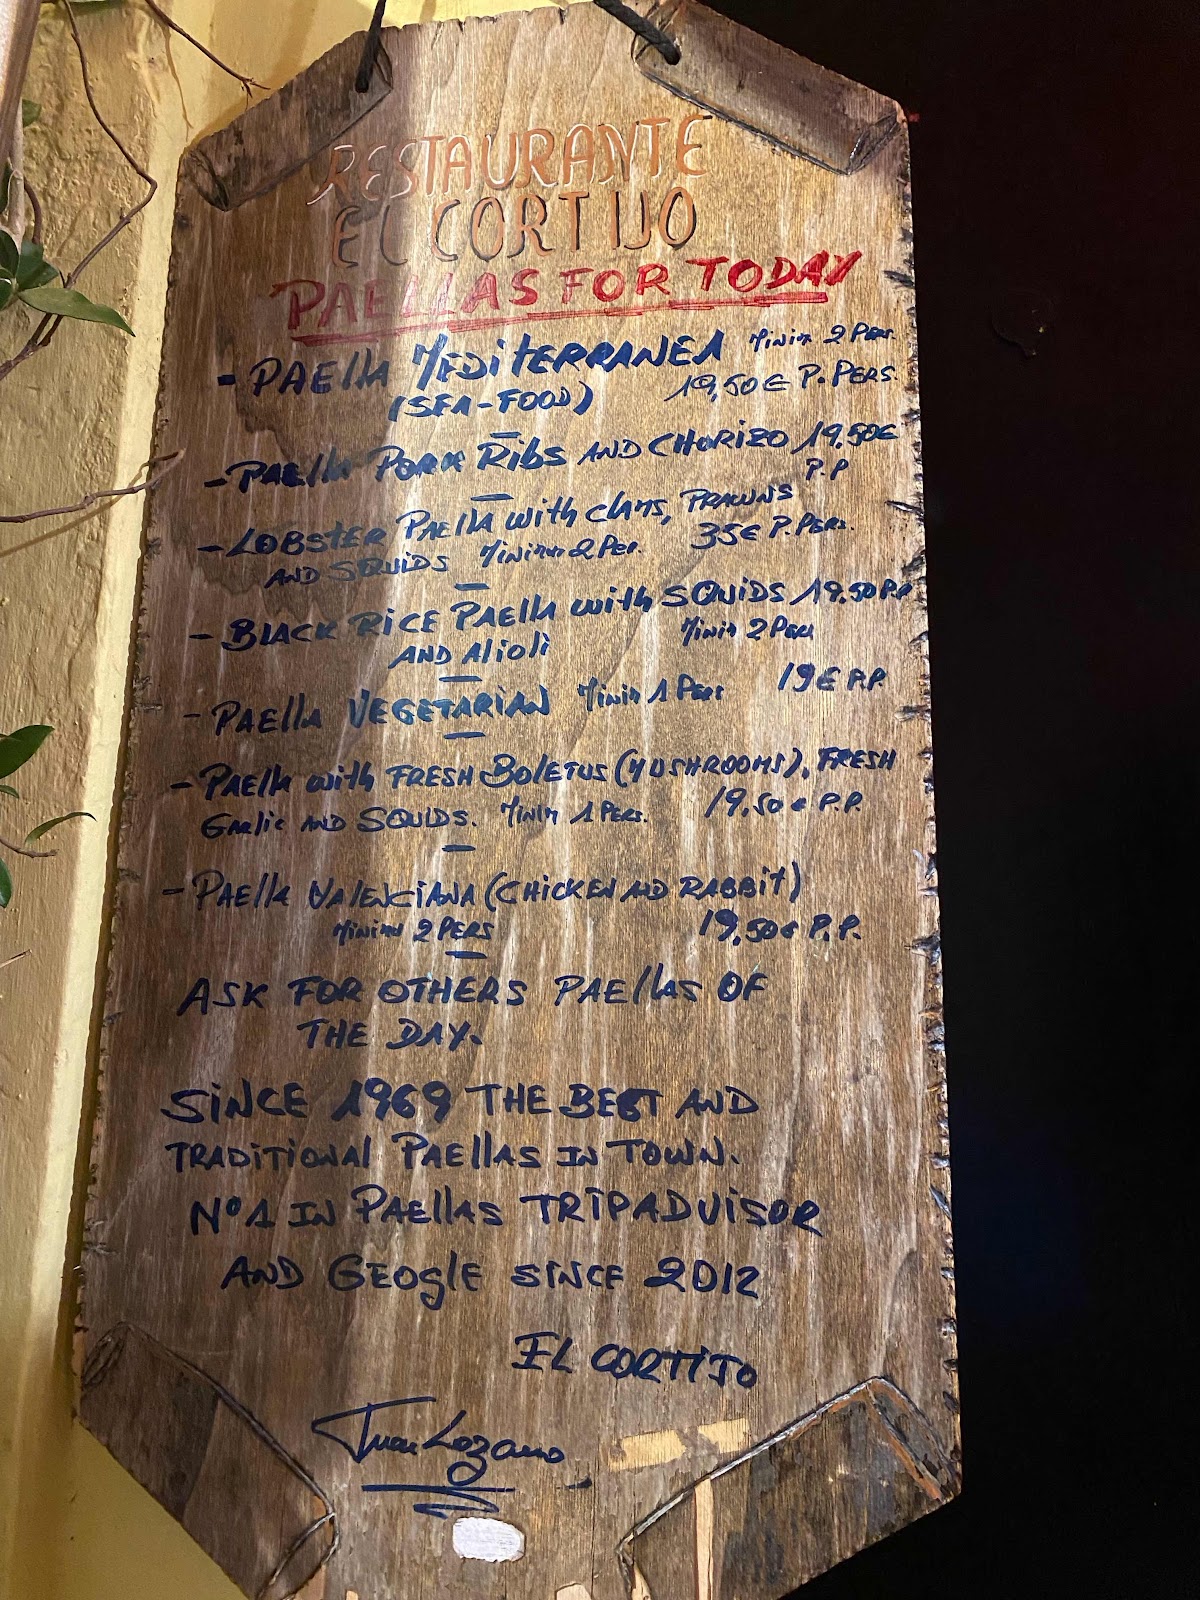 RESTAURANTE
EL CORTIJO
PAELLAS FOR TODAY
- PAElla MEDiTERRANEA Minim 2 Pers.
(SEA-FOOD) 19,50€ P. PERS.
- PAElla PORK RibS AND CHORIZO 19,50€
P.P
- LOBSTER PAElla with clAMS, PRAWNS
AND SQUIDS Minimum 2 Per. 35€ P. PERS.
- BLACK RICE PAElla with SQUIDS 19,50 P.P.
AND Alioli Minim 2 Pers
- PAElla VEGETARIAN Minim 1 Pers 19€ P.P.
- PAElla with FRESH BolETUS (MUSHROOMS), FRESH
GARlic AND SQUIDS. Minim 1 PERS. 19,50 € P.P.
- PAElla VALENCiANA (CHiCKEN AND RABBiT)
Minimum 2 PERS 19,50€ P.P.
ASK FOR OTHERS PAEllAS OF
THE DAY.
SiNCE 1969 THE BEST AND
TRADiTiONAl PAEllAS IN TOWN.
Nº1 IN PAEllAS TRiPADViSOR
AND GEOglE SiNCE 2012
EL CORTiJO
Juan Lozano